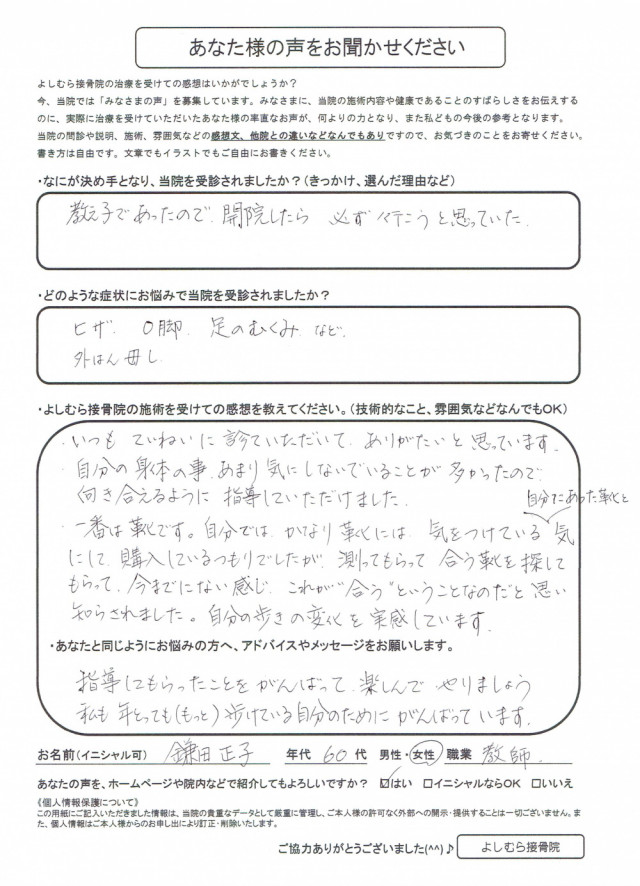 あなた様の声をお聞かせください
よしむら接骨院の治療を受けての感想はいかがでしょうか？
今、当院では「みなさまの声」を募集しています。みなさまに、当院の施術内容や健康であることのすばらしさをお伝えする
のに、実際に治療を受けていただいたあなた様の率直なお声が、何よりの力となり、また私どもの今後の参考となります。
当院の問診や説明、施術、雰囲気などの感想文、他院との違いなどなんでもありですので、お気づきのことをお寄せください。
書き方は自由です。文章でもイラストでもご自由にお書きください。
・なにが決め手となり、当院を受診されましたか？（きっかけ、選んだ理由など）
教え子であったので、開院したら 必ず行こうと思っていた。
・どのような症状にお悩みで当院を受診されましたか？
ヒザ、O脚、足のむくみ など、
外はん母し
・よしむら接骨院の施術を受けての感想を教えてください。（技術的なこと、雰囲気などなんでもOK）
・いつも ていねいに 診ていただいて、ありがたいと思っています。
・自分の身体の事、あまり気にしないでいることが多かったので、
向き合えるように 指導していただけました。
自分にあった靴と
・一番は靴です。自分では、かなり靴には、気をつけている 気
にして、購入しているつもりでしたが、測ってもらって 合う靴を探して
もらって、今までにない感じ、これが“合う”ということなのだと思い
知らされました。自分の歩きの変化を実感しています。
・あなたと同じようにお悩みの方へ、アドバイスやメッセージをお願いします。
指導してもらったことを がんばって、楽しんで やりましょう
私も 年とっても（もっと）歩けている自分のために がんばって います。
お名前（イニシャル可） 鎌田 正子 年代 60 代 男性・女性 職業 教師.
あなたの声を、ホームページや院内などで紹介してもよろしいですか？ ☑はい □イニシャルならOK □いいえ
《個人情報保護について》
この用紙にご記入いただきました情報は、当院の貴重なデータとして厳重に管理し、ご本人様の許可なく外部への開示・提供することは一切ございません。ま
た、個人情報はご本人様からのお申し出により訂正・削除いたします。
ご協力ありがとうございました(^^)♪ よしむら接骨院